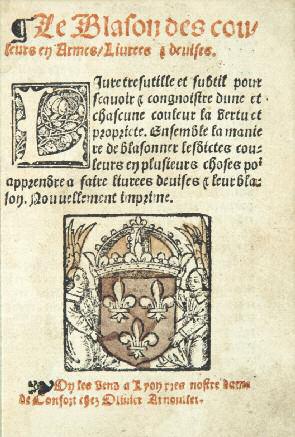 ¶Le Blason des cou⸗
leurs en Armes/Liurees ⁊ deuises.
LIure tresutille et subtil pour
scauoir ⁊ congnoistre dune et
chascune couleur la vertu et
propriete. Ensemble la manie
re de blasonner lesdictes cou⸗
leurs en plusieurs choses po²
apprendre a faire liurees deuises ⁊ leur bla⸗
son. Nouuellement imprime.
On les vend a Lyon pres nostre dame
de Confort chez Oliuier Arnoullet.